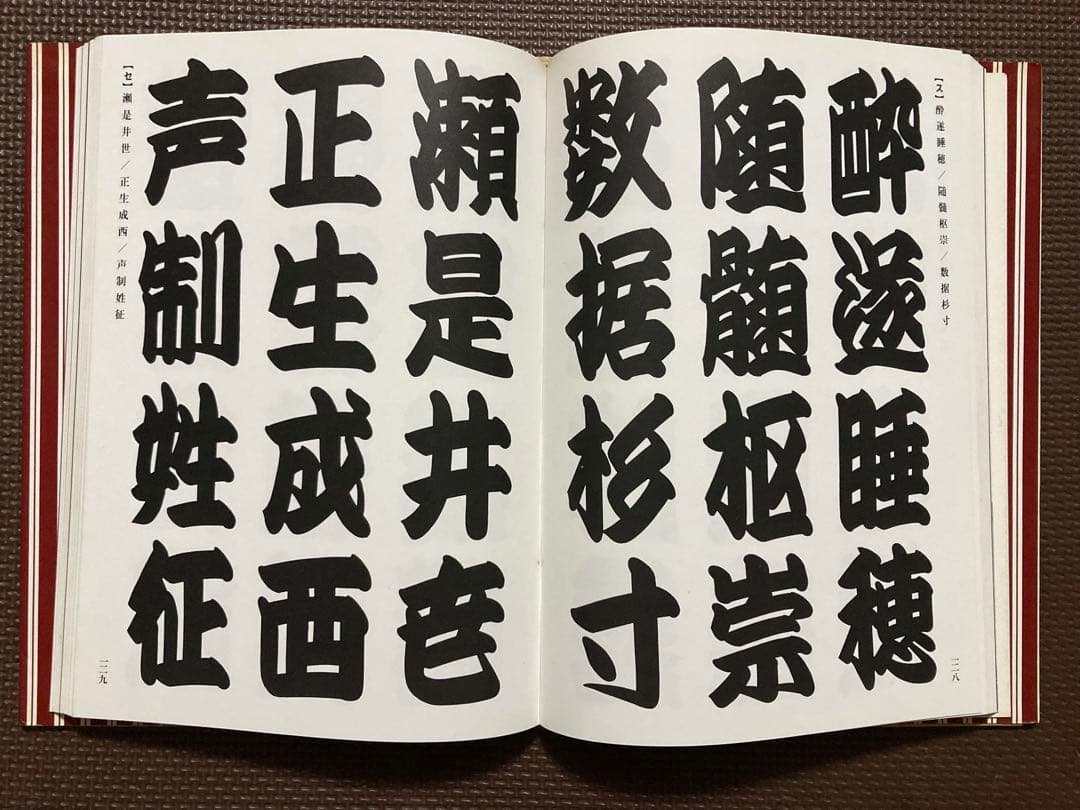 【ス】酔遂睡穂／随髄枢崇／数据杉寸
酔遂睡穂
随髄枢崇
数据杉寸
一二八
瀬是井世
正生成西
声制姓征
【セ】瀬是井世／正生成西／声制姓征
一二九